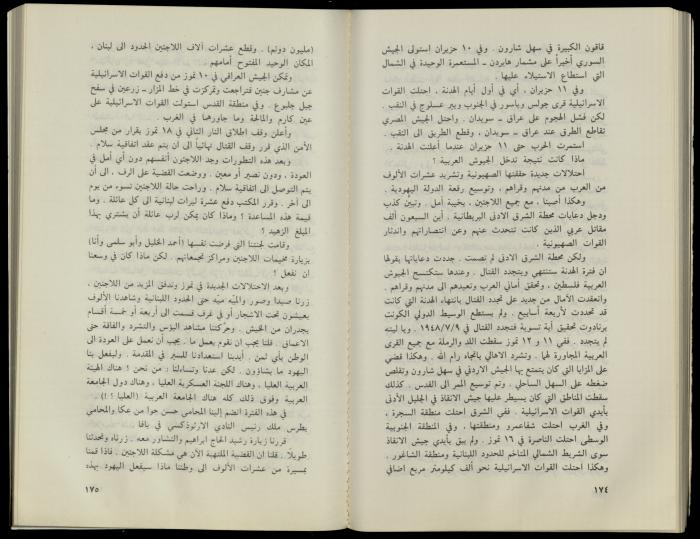 قاقون الكبيرة في سهل شارون . وفي ١٠ حزيران استولى الجيش
السوري أخيراً على مشمار هايردن – المستعمرة الوحيدة في الشمال
التي استطاع الاستيلاء عليها .
وفي ١١ حزيران ، أي في أول أيام الهدنة ، احتلت القوات
الاسرائيلية قرى جولس وياسور في الجنوب وبير عسلوج في النقب .
لكن فشل الهجوم على عراق – سويدان . واحتل الجيش المصري
تقاطع الطرق عند عراق – سويدان ، وقطع الطريق الى النقب .
استمرت الحرب حتى ١١ حزيران عندما أعلنت الهدنة .
ماذا كانت نتيجة تدخل الجيوش العربية ؟
احتلالات جديدة حققتها الصهيونية وتشريد عشرات الألوف
من العرب من مدنهم وقراهم ، وتوسيع رقعة الدولة اليهودية .
وهكذا أصبنا ، مع جميع اللاجئين ، بخيبة أمل . وتبيّن كذب
ودجل دعايات محطة الشرق الادنى البريطانية . أين السبعون ألف
مقاتل عربي الذين كانت تتحدث عنهم وعن انتصاراتهم واندثار
القوات الصهيونية .
ولكن محطة الشرق الادنى لم تصمت . جددت دعاياتها بقولها
ان فترة الهدنة ستنتهي ويتجدد القتال . وعندها ستكتسح الجيوش
العربية فلسطين ، وتحقق أماني العرب وتعيدهم الى مدنهم وقراهم .
وانعقدت الآمال من جديد على تجدد القتال بانتهاء الهدنة التي كانت
قد تحددت لأربعة أسابيع . ولم يستطع الوسيط الدولي الكونت
برنادوت تحقيق أية تسوية فتجدد القتال في ١٩٤٨/٧/٩ . ويا ليته
لم يتجدد . ففي ١١ و ١٢ تموز سقطت اللد والرملة مع جميع القرى
العربية المجاورة لهما . وتشرد الاهالي باتجاه رام الله . وهكذا قضي
على المزايا التي كان يتمتع بها الجيش الاردني في سهل شارون وتقلص
ضغطه على السهل الساحلي . وتم توسيع الممر الى القدس . كذلك
سقطت المناطق التي كان يسيطر عليها جيش الانقاذ في الجليل الأدنى
بأيدي القوات الاسرائيلية . ففي الشرق احتلت منطقة السجرة ،
وفي الغرب احتلت شفاعمرو ومنطقتها ، وفي المنطقة الجنوبية
الوسطى احتلت الناصرة في ١٦ تموز . ولم يبق بأيدي جيش الانقاذ
سوى الشريط الشمالي المتاخم للحدود اللبنانية ومنطقة الشاغور .
وهكذا احتلت القوات الاسرائيلية نحو ألف كيلومتر مربع اضافي
١٧٤
(مليون دونم) . وقطع عشرات آلاف اللاجئين الحدود الى لبنان ،
المكان الوحيد المفتوح أمامهم .
وتمكن الجيش العراقي في ١٠ تموز من دفع القوات الاسرائيلية
عن مشارف جنين فتراجعت وتمركزت في خط المزار – زرعين في سفح
جبل جلبوع . وفي منطقة القدس استولت القوات الاسرائيلية على
عين كارم والمالحة وما جاورهما في الغرب .
وأعلن وقف اطلاق النار الثاني في ١٨ تموز بقرار من مجلس
الأمن الذي قرر وقف القتال نهائياً الى ان يتم عقد اتفاقية سلام .
وبعد هذه التطورات وجد اللاجئون أنفسهم دون أي أمل في
العودة ، ودون نصير أو معين . ووضعت القضية على الرف ، الى أن
يتم التوصل الى اتفاقية سلام . وراحت حالة اللاجئين تسوء من يوم
الى آخر . وقرر المكتب دفع عشرة ليرات لبنانية الى كل عائلة . وما
قيمة هذه المساعدة ؟ وماذا كان يمكن لرب عائلة أن يشتري بهذا
المبلغ الزهيد ؟
وقامت لجنتنا التي فرضت نفسها (أحمد الخليل وأبو سلمى وأنا)
بزيارة مخيمات اللاجئين ومراكز تجمعاتهم . لكن ماذا كان في وسعنا
ان نفعل ؟
وبعد الاحتلالات الجديدة في تموز وتدفق المزيد من اللاجئين ،
زرنا صيدا وصور والميّه ميّه حتى الحدود اللبنانية وشاهدنا الألوف
يعيشون تحت الاشجار أو في غرف قسمت الى أربعة أو خمسة أقسام
بجدران من الخيش . وحرّكتنا مشاهد البؤس والتشرد والفاقة حتى
الاعماق . قلنا يجب ان نقوم بعمل ما . يجب أن نعمل على العودة الى
الوطن بأي ثمن . أبدينا استعدادنا للسير في المقدمة . وليفعل بنا
اليهود ما يشاؤون . لكن عدنا وتساءلنا : من نحن ؟ هناك الهيئة
العربية العليا ، وهناك اللجنة العسكرية العليا ، وهناك دول الجامعة
العربية وفوق ذلك كله هناك الجامعة العربية (العليا ؟ !) .
في هذه الفترة انضم إلينا المحامي حسن حوا من عكا والمحامي
بطرس ملك رئيس النادي الارثوذكسي في يافا
قررنا زيارة رشيد الحاج ابراهيم والتشاور معه . زرناه وتحدثنا
طويلاً . قلنا ان القضية الملتهبة الآن هي مشكلة اللاجئين . فاذا قمنا
بمسيرة من عشرات الألوف الى وطننا ماذا سيفعل اليهود بهذه
١٧٥